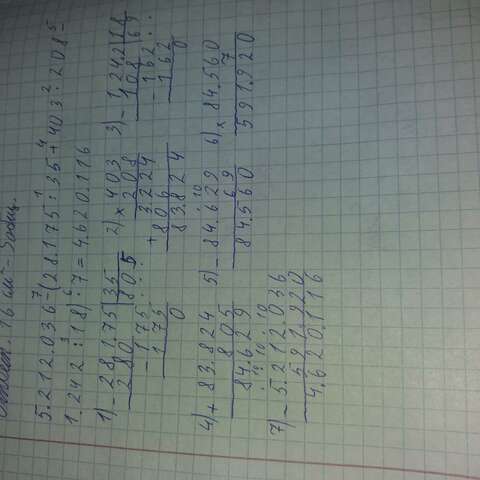 16 см²
5.212.036-(28.175:35+403·208-
1.242:18)·7=4.620.116
1) - 28.175 | 35
280 | 805
- 175
175
0
2) × 403
208
+ 3.224
806
83.824
3) - 1.242 | 18
108 | 69
- 162
162
0
4) + 83.824
805
84.629
5) - 84.629
69
84.560
6) × 84.560
7
591.920
7) - 5.212.036
591.920
4.620.116